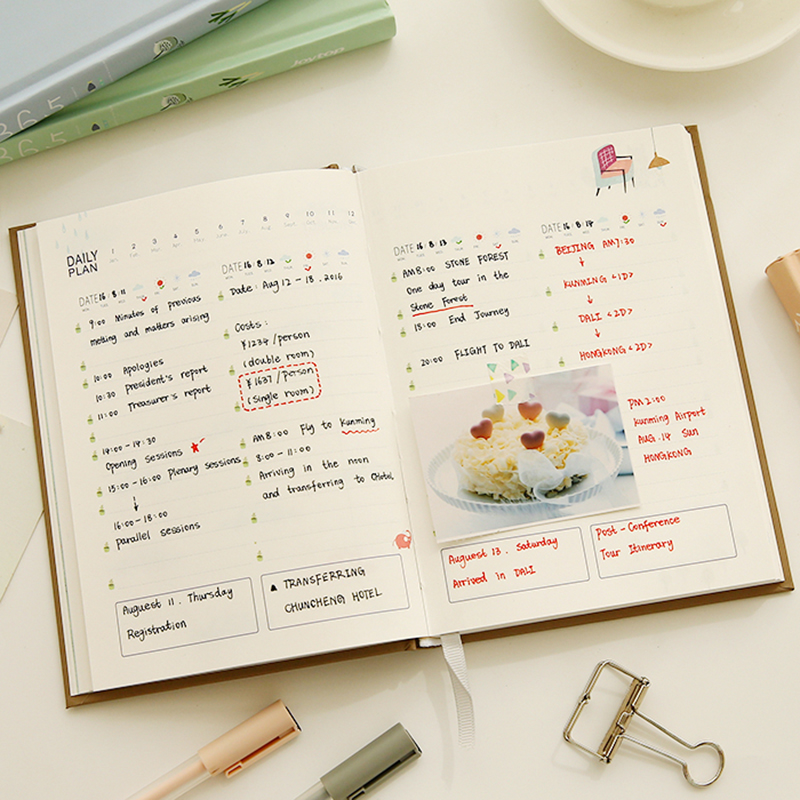 365
365
Joytop
DAILY
PLAN
1 2 3 4 5 6 7 8 9 10 11 12
DATE 16.8.11
9:00 Minutes of previous
metting and matters arising
10:00 Apologies
10:30 President's report
11:00 Treasurer's report
14:00-14:30
Opening sessions
15:00-16:00 Plenary sessions
16:00-18:00
parallel sessions
Auguest 11. Thursday
Registration
DATE 16.8.12
Date: Aug 12-18.2016
Costs:
¥1234/person
(double room)
¥1637/person
(single room)
AM8:00 Fly to Kunming
8:00-11:00
Arriving in the noon
and transferring to CHotel
▲ TRANSFERRING
CHUNCHENG HOTEL
DATE 16.8.13
AM8:00 STONE FOREST
One day tour in the
Stone Forest
18:00 End Journey
20:00 FLIGHT TO DALI
Auguest 13. Saturday
Arrived in DALI
DATE 16.8.14
BEIJING AM7:30
↓
KUNMING <1D>
↓
DALI <2D>
↓
HONGKONG <2D>
PM2:00
Kunming Airport
AUG.14 Sun
HONGKONG
Post-Conference
Tour Itinerary